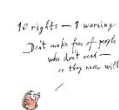 10 rights – 1 warning
Don't make fun of people
who don't read –
or they never will